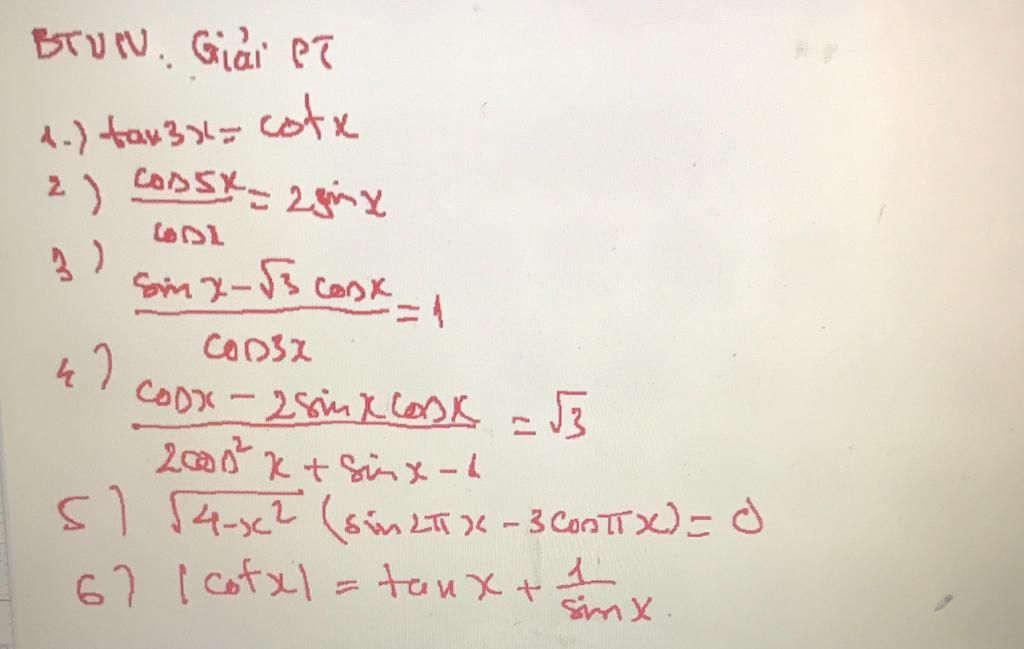 BTVN: Giải PT
1.) tan3x = cotx
2) cos5x/cosx = 2sinx
3) (sinx - √3 cosx)/cos3x = 1
4) (cosx - 2sinxcosx)/(2cos²x + sinx - 1) = √3
5) √(4-x²) (sin2πx - 3cosπx) = 0
6) |cotx| = tanx + 1/sinx.